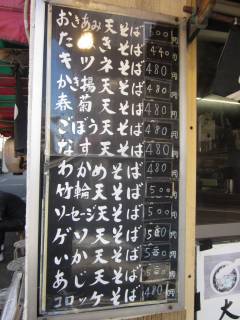 おきあみ天そば 500円
たぬきそば 440円
キツネそば 480円
かき揚天そば 480円
春菊天そば 480円
ごぼう天そば 480円
なす天そば 480円
わかめそば 480円
竹輪天そば 500円
ソーセージ天そば 500円
ゲソ天そば 580円
いか天そば 580円
あじ天そば 580円
コロッケそば 480円
大